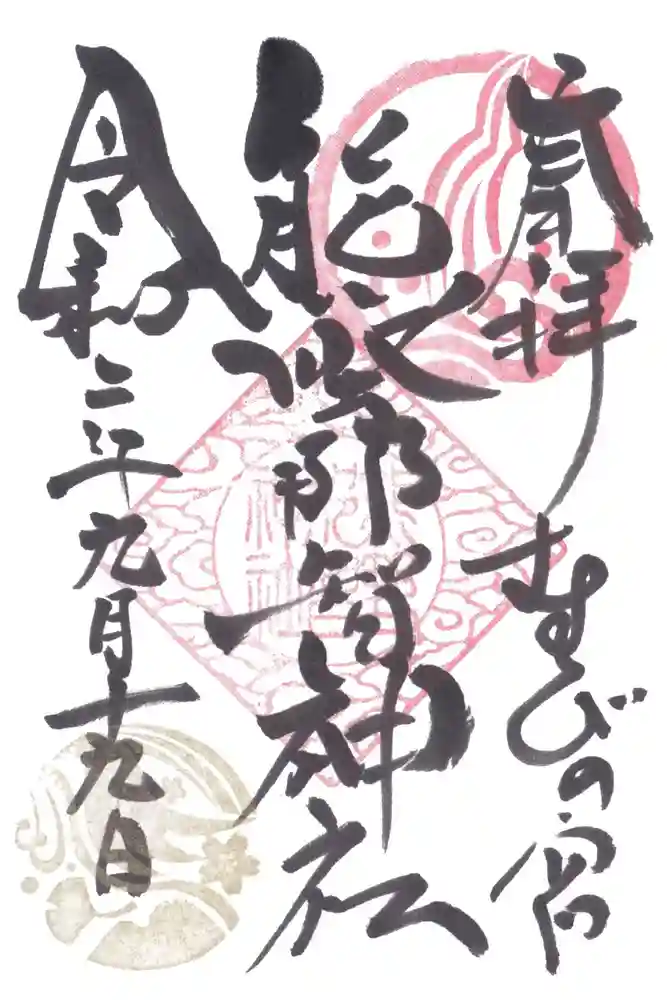 拝 むすびの宮
熊野那智神社
令和二年九月十九日